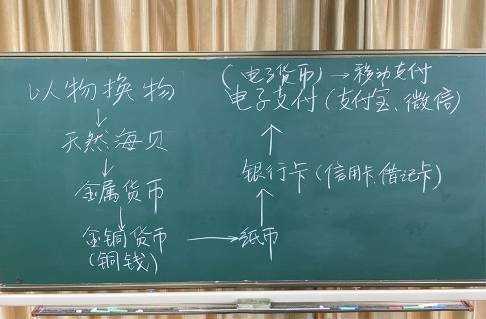 以物换物
↓
天然海贝
↓
金属货币
↓
金铜货币
(铜钱)
→纸币
↑
银行卡(信用卡、借记卡)
↑
电子支付(支付宝、微信)
(电子货币)→移动支付